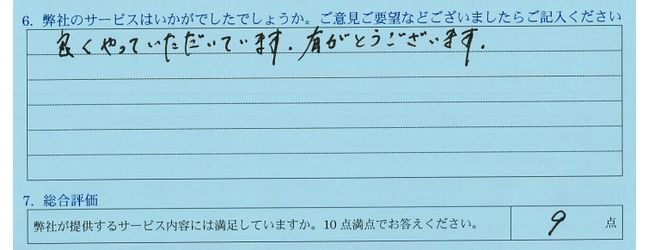 6. 弊社のサービスはいかがでしたでしょうか。ご意見ご要望などございましたらご記入ください
良くやっていただいています. 有がとうございます.
7. 総合評価
弊社が提供するサービス内容には満足していますか。10 点満点でお答えください。 9 点